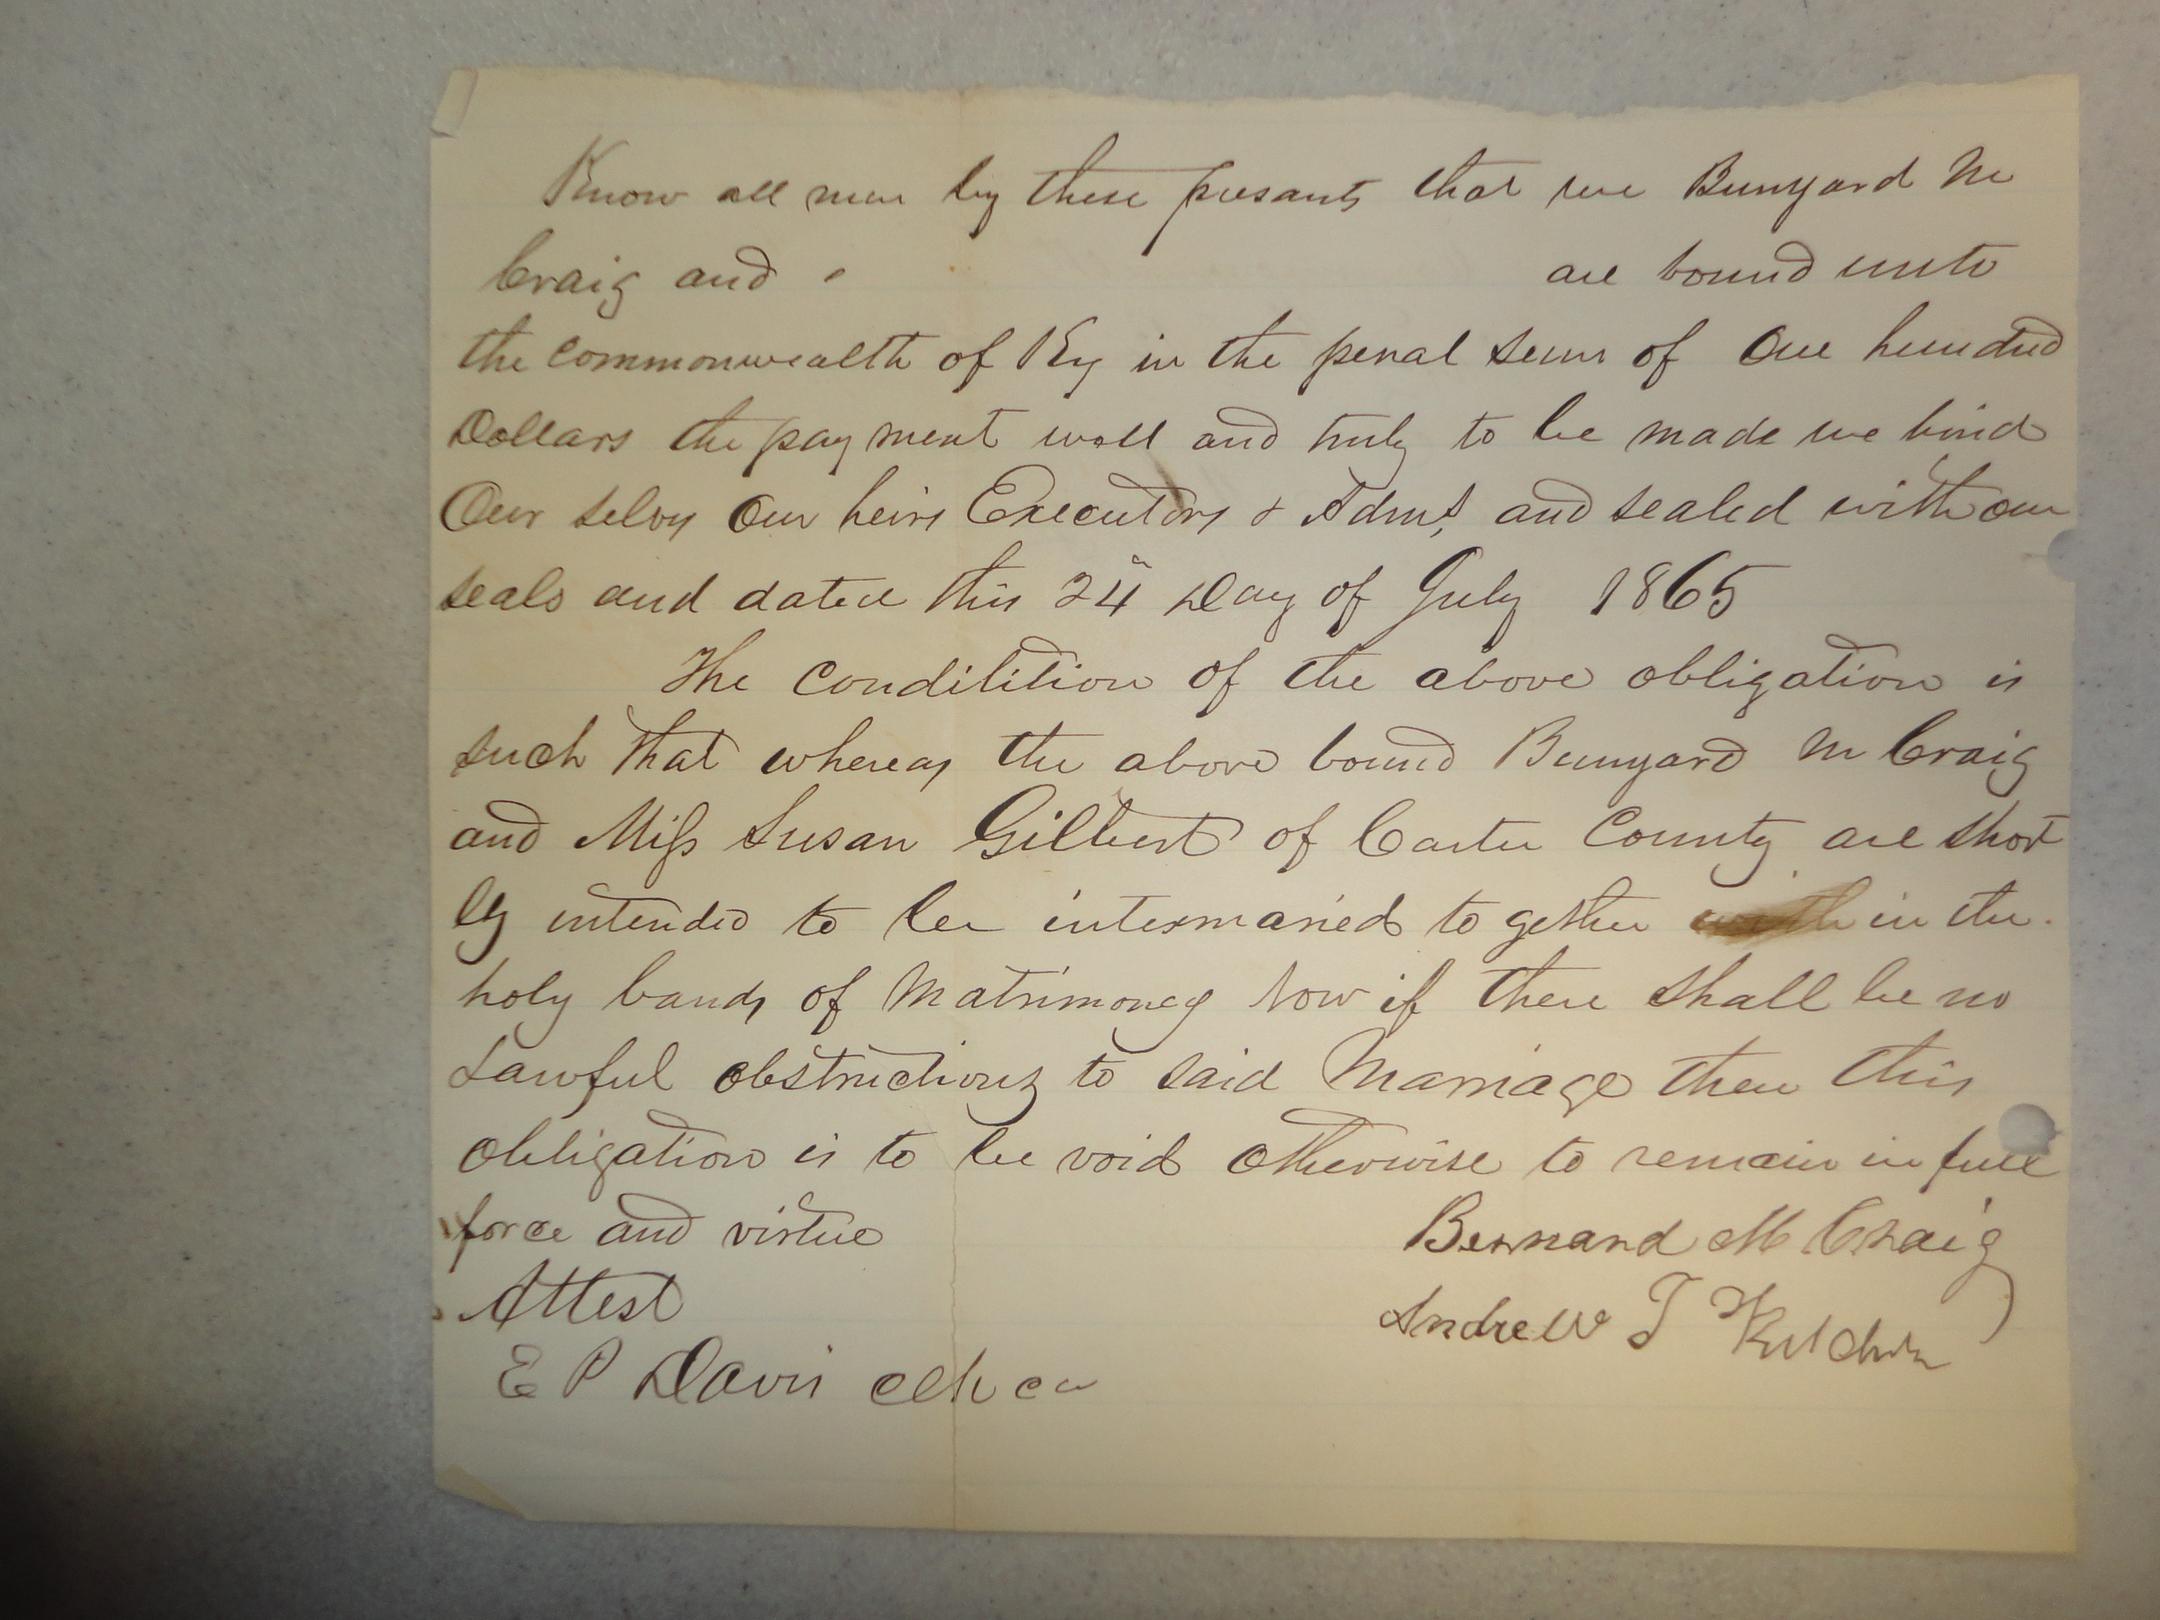 Know all men by these presants that we Bunyard M
Craig and are bound unto
the commonwealth of Ky in the penal sum of One hundred
Dollars the payment well and truly to be made we bind
Our selvs Our heirs Executors & Adms, and sealed with our
seals and dated this 24 Day of July 1865
The condilition of the above obligation is
such that whereas the above bound Bunyard M Craig
and Miss Susan Gilbert of Carter County are short
ly intended to be intermaried to gether with in the
holy bands of Matrimoney Now if there shall be no
Lawful obstructions to said Marriage then this
obligation is to be void otherwise to remain in full
force and virtue
Bernard M Craig
Attest
Andrew T
E P Davis clk